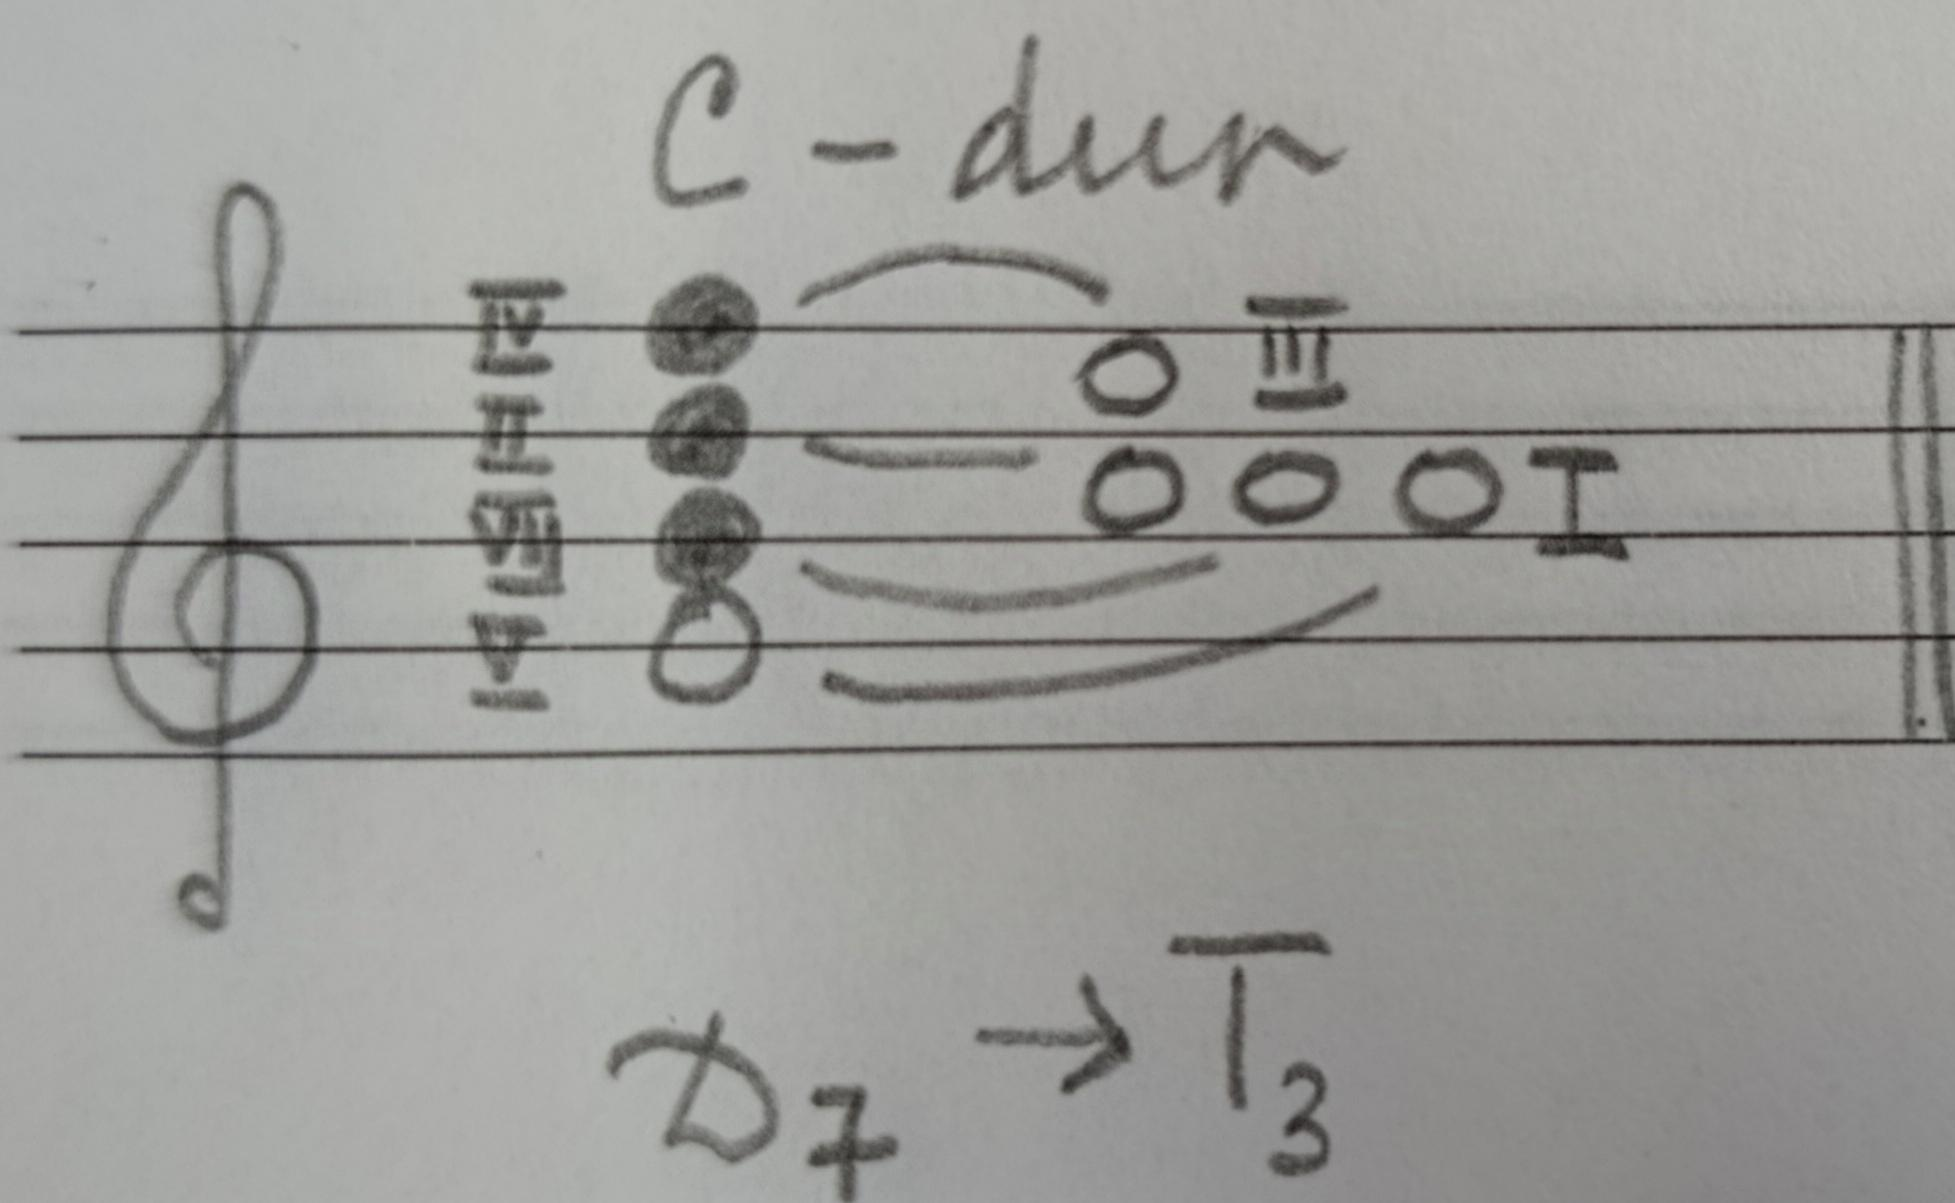 C - dur
IV
III
II
VII
I
V
D7 → T3